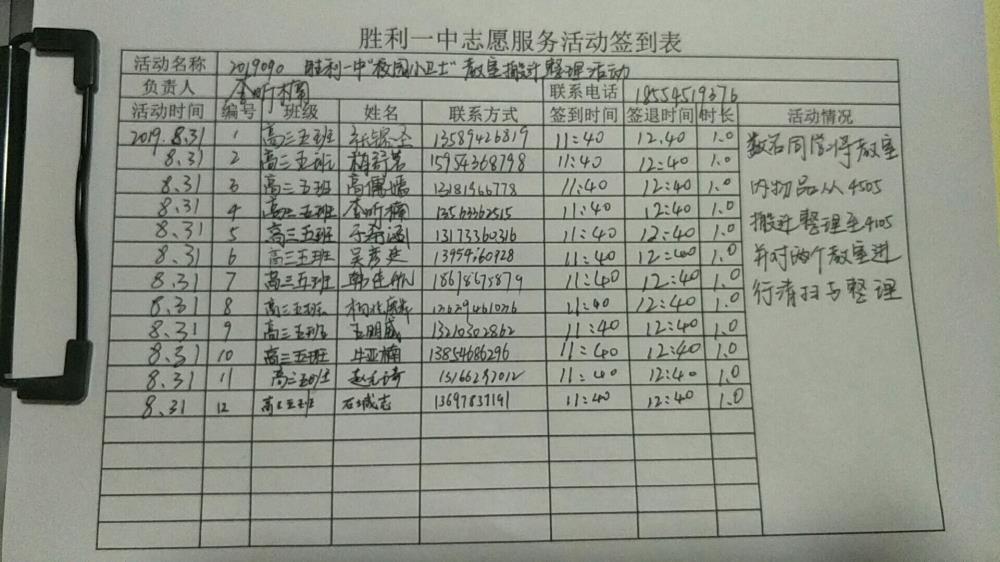 胜利一中志愿服务活动签到表
活动名称 2019090 胜利一中"校园小卫士"教室搬迁整理活动
负责人 李昕楠 联系电话 18554519376
活动时间 编号 班级 姓名 联系方式 签到时间 签退时间 时长 活动情况
2019.8.31 1 高三五班 13589426819 11:40 12:40 1.0
8.31 2 高三五班 15954368798 11:40 12:40 1.0
8.31 3 高三五班 高儒嫱 13181566778 11:40 12:40 1.0
8.31 4 高三五班 李昕楠 13563362515 11:40 12:40 1.0
8.31 5 高三五班 于希涵 13173360316 11:40 12:40 1.0
8.31 6 高三五班 吴彦廷 13954660328 11:40 12:40 1.0
8.31 7 高三五班 18618675879 11:40 12:40 1.0
8.31 8 高三五班 11:40 12:40 1.0
8.31 9 高三五班 王明威 13210302862 11:40 12:40 1.0
8.31 10 高三五班 牛亚楠 13854686296 11:40 12:40 1.0
8.31 11 高三五班 15166287012 11:40 12:40 1.0
8.31 12 高三五班 石城志 13697837191 11:40 12:40 1.0
数名同学将教室
内物品从4505
搬迁整理至4105
并对两个教室进
行清扫与整理